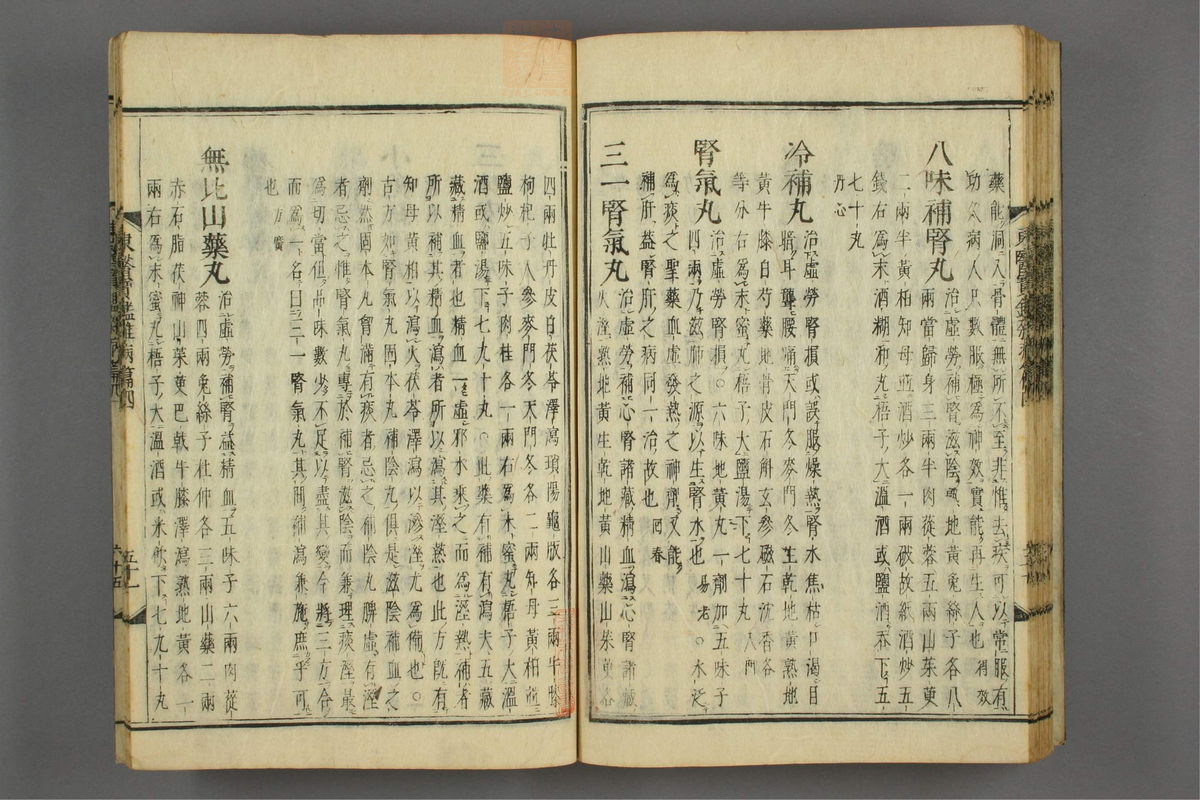 藥能洞入骨髓無所不至非惟去疾可以常服有
助久病人只數服極爲神效實能再生人也得效
八味補腎丸 治虛勞補腎滋陰熟地黃兔絲子各八
兩當歸身三兩半肉蓯蓉五兩山茱萸
二兩半黃柏知母並酒炒各一兩破故紙酒炒五
錢右爲末酒糊和丸梧子大溫酒或鹽酒吞下五
七十丸
丹心
冷補丸 治虛勞腎損或誤服燥熱腎水焦枯口渴目
暗耳聾腰痛天門冬麥門冬生乾地黃熟地
黃牛膝白芍藥地骨皮石斛玄參磁石沈香各
等分右爲末蜜丸梧子大鹽湯下七十丸入門
腎氣丸 治虛勞腎損○六味地黃丸一劑加五味子
四兩乃滋肺之源以生腎水也易老○水泛
爲痰之聖藥血虛發熱之神劑又能
補肝益腎肝之病同一治故也回春
三一腎氣丸 治虛勞補心腎諸藏精血瀉心腎諸藏
火濕熟地黃生乾地黃山藥山茱萸各
四兩牡丹皮白茯苓澤瀉瑣陽龜版各三兩牛膝
枸杞子人參麥門冬天門冬各二兩知母黃柏並
鹽炒五味子肉桂各一兩右爲末蜜丸梧子大溫
酒或鹽湯下七九十丸○此藥有補有瀉夫五藏
藏精血者也精血一虛邪水乘之而爲濕熱補者
所以補其精血瀉者所以瀉其濕熱也此方旣有
知母黃柏以瀉火茯苓澤瀉以滲濕尤爲備也○
古方如腎氣丸固本丸補陰丸俱是滋陰補血之
劑然固本丸胷滿有痰者忌之補陰丸脾虛有濕
者忌之惟腎氣丸專於補腎滋陰而兼理痰濕最
爲切當但品味數少不足以盡其變今將三方合
而爲一名曰三一腎氣丸其間補瀉兼施庶乎可
也方廣
無比山藥丸 治虛勞補腎益精血五味子六兩肉蓯
蓉四兩兔絲子杜仲各三兩山藥二兩
赤石脂茯神山茱萸巴戟牛膝澤瀉熟地黃各一
兩右爲末蜜丸梧子大溫酒或米飲下七九十丸
東醫寶鑑雜病篇四